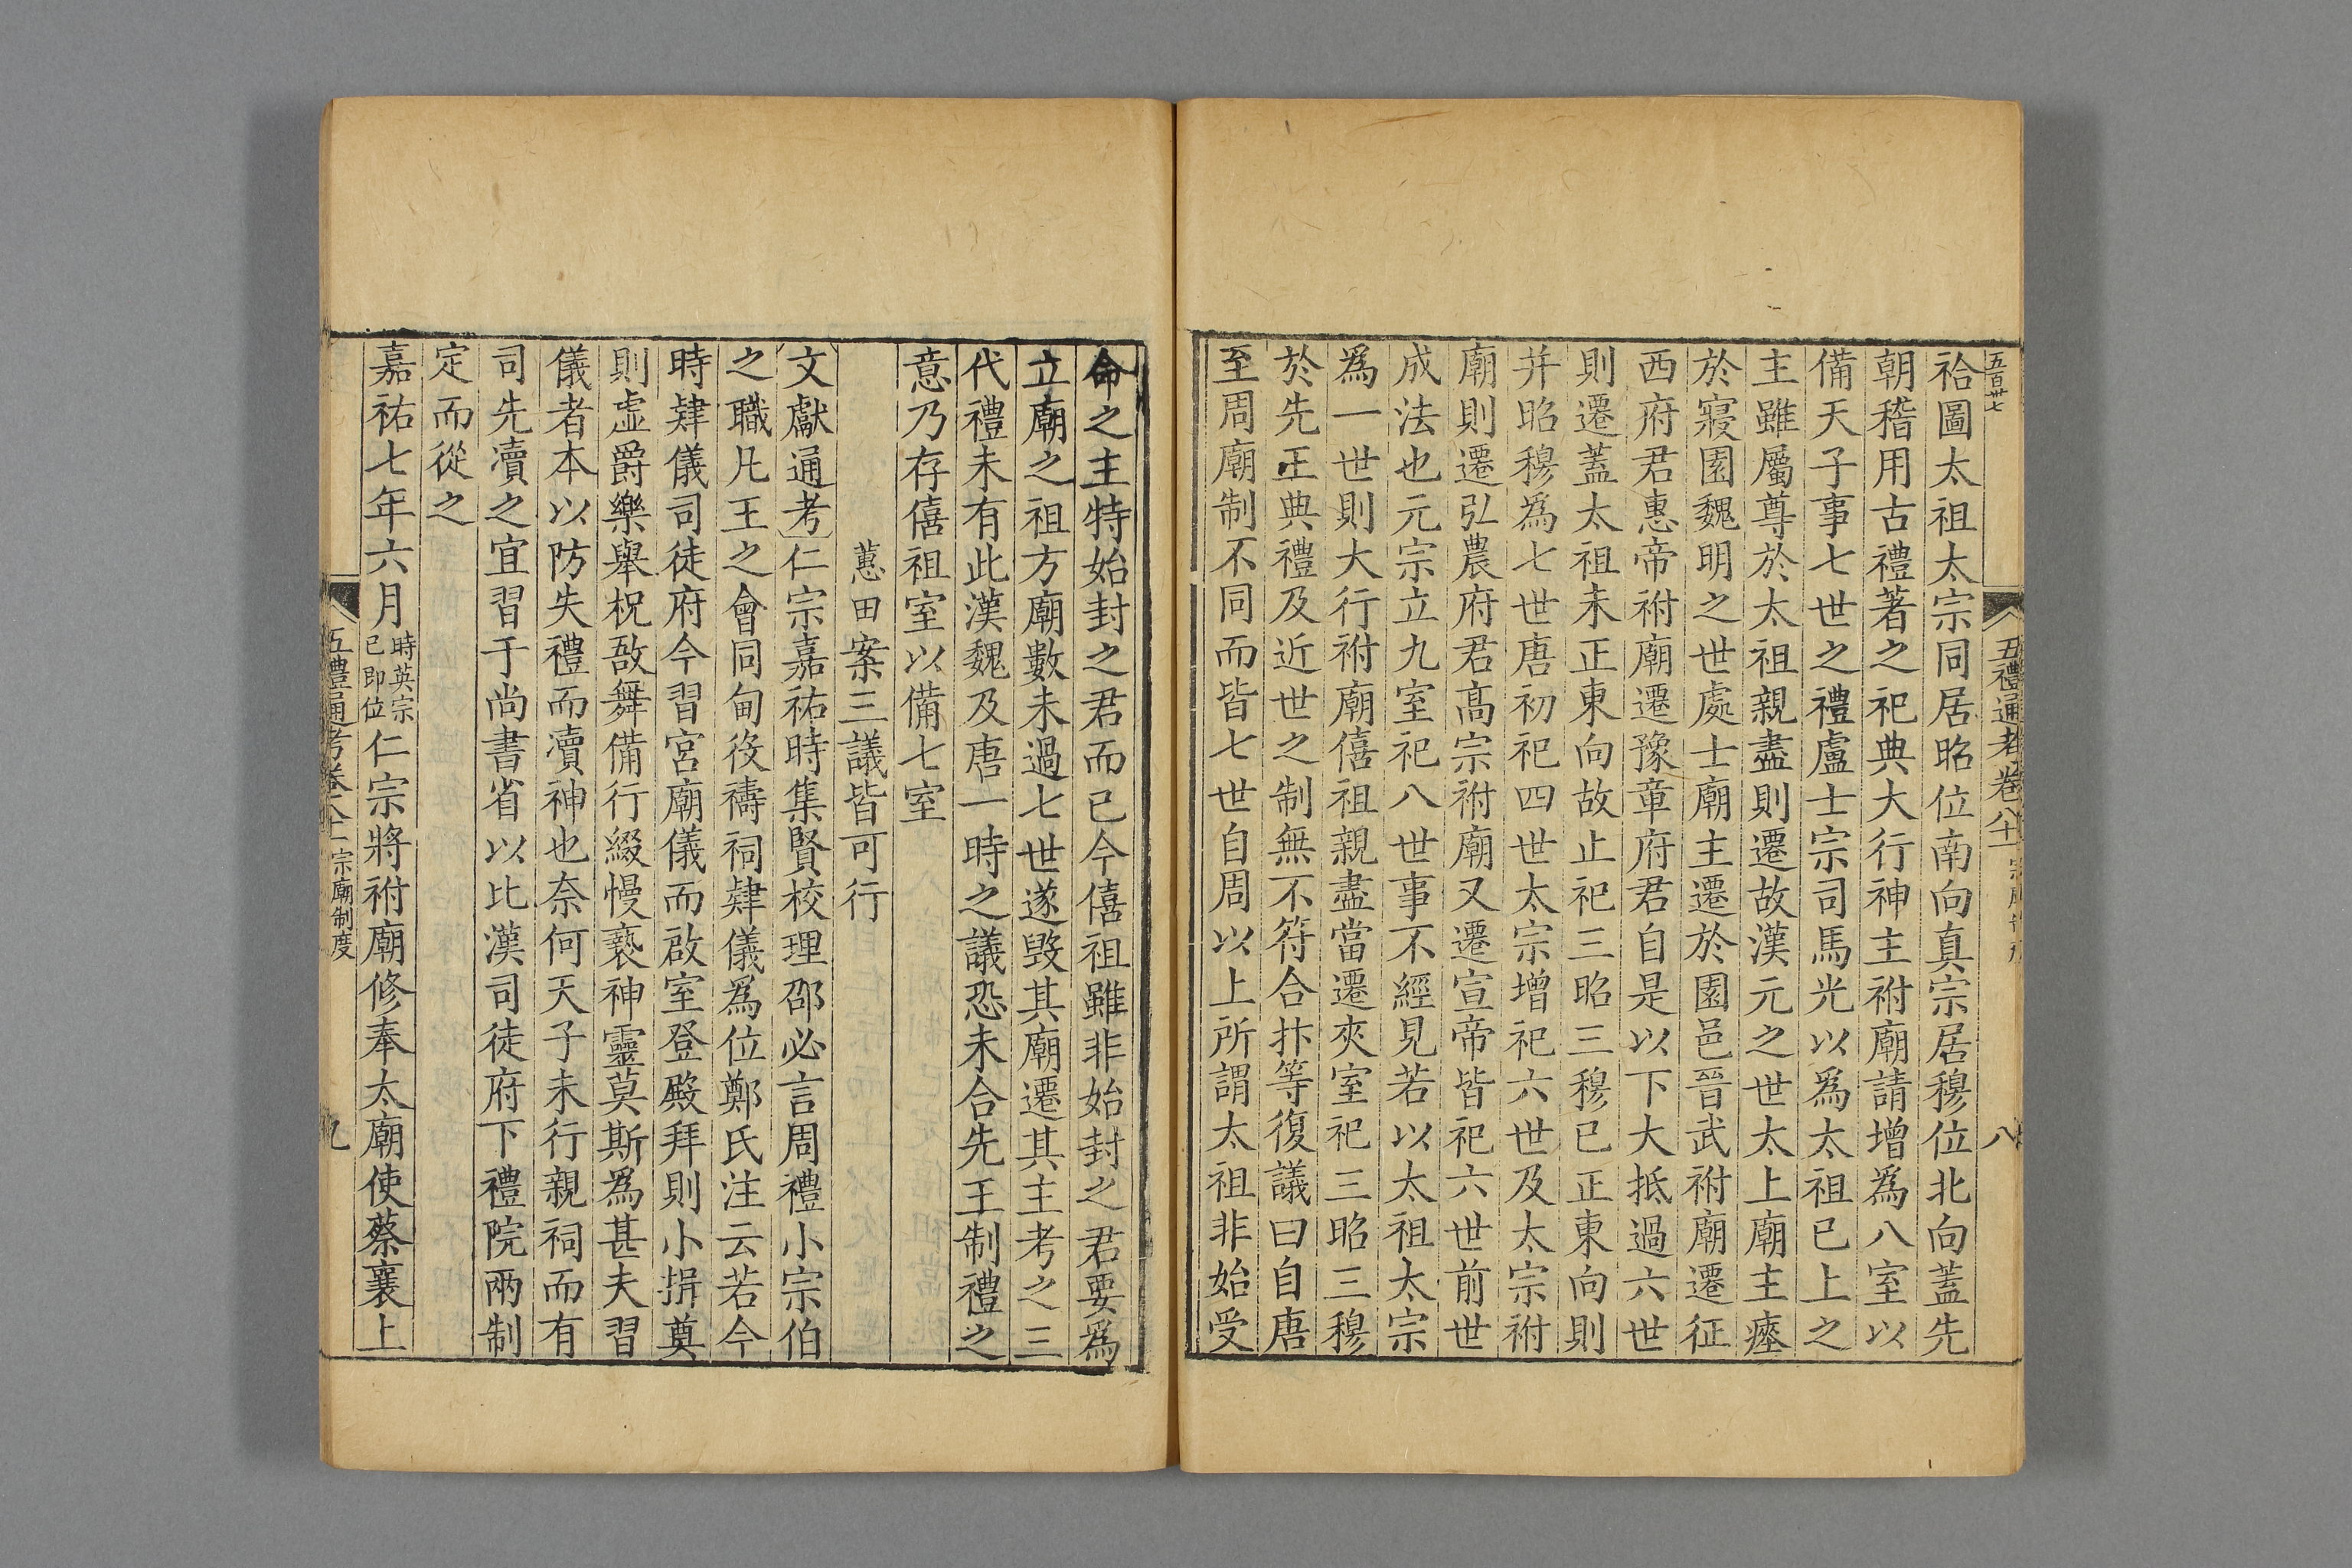 五百卅七
五禮通考卷八十
八
祫圖太祖太宗同居昭位南向真宗居穆位北向蓋先
朝稽用古禮著之祀典大行神主祔廟請增爲八室以
備天子事七世之禮盧士宗司馬光以爲太祖已上之
主雖屬尊於太祖親盡則遷故漢元之世太上廟主瘞
於寢園魏明之世處士廟主遷於園邑晉武祔廟遷征
西府君惠帝祔廟遷豫章府君自是以下大抵過六世
則遷蓋太祖未正東向故止祀三昭三穆已正東向則
并昭穆爲七世唐初祀四世太宗增祀六世及太宗祔
廟則遷弘農府君高宗祔廟又遷宣帝皆祀六世前世
成法也元宗立九室祀八世事不經見若以太祖太宗
爲一世則大行祔廟僖祖親盡當遷夾室祀三昭三穆
於先王典禮及近世之制無不符合抃等復議曰自唐
至周廟制不同而皆七世自周以上所謂太祖非始受
命之主特始封之君而已今僖祖雖非始封之君要爲
立廟之祖方廟數未過七世遂毁其廟遷其主考之三
代禮未有此漢魏及唐一時之議恐未合先王制禮之
意乃存僖祖室以備七室
蕙田案三議皆可行
文獻通考仁宗嘉祐時集賢校理邵必言周禮小宗伯
之職凡王之會同甸役禱祠肄儀爲位鄭氏注云若今
時肄儀司徒府今習宮廟儀而啟室登殿拜則小揖奠
則虛爵樂舉柷敔舞備行綴慢褻神靈莫斯爲甚夫習
儀者本以防失禮而瀆神也奈何天子未行親祠而有
司先瀆之宜習于尚書省以比漢司徒府下禮院兩制
定而從之
嘉祐七年六月時英宗已即位仁宗將祔廟修奉太廟使蔡襄上
五禮通考卷八十 宗廟制度
九